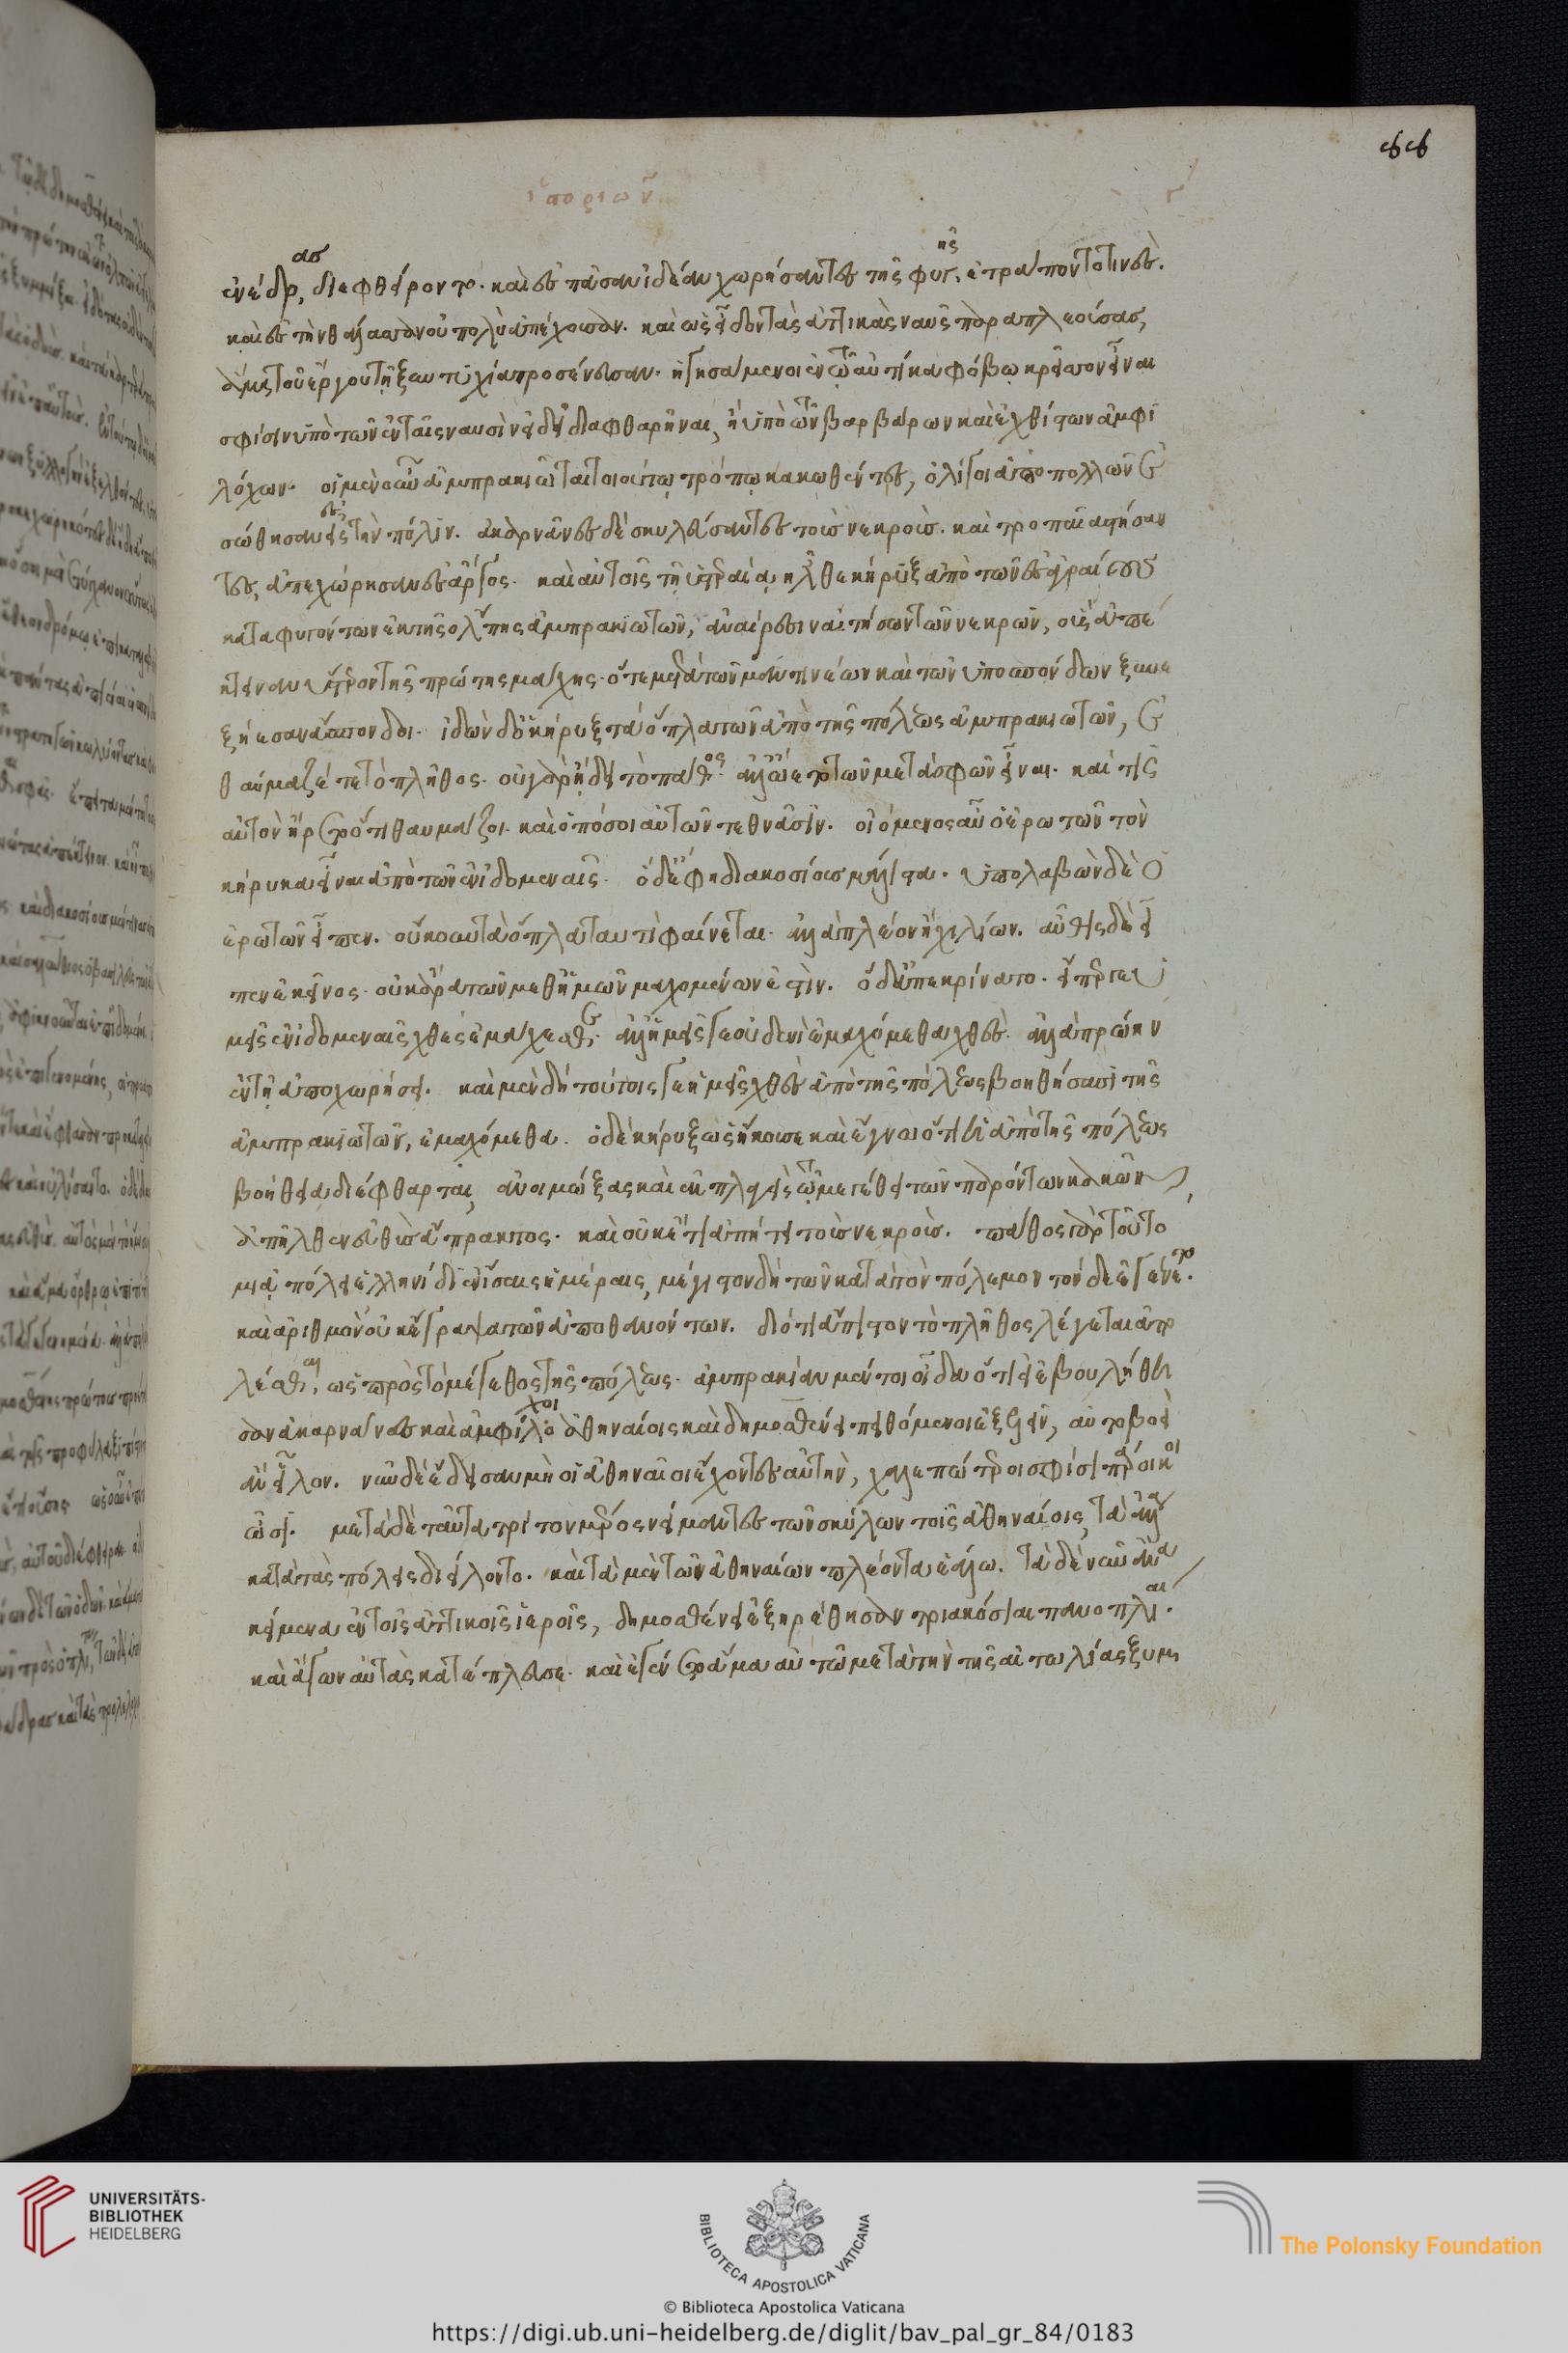 66
ἱστοριῶν γ
ἐνέδρας, διεφθείροντο. καὶ ἐς πᾶσαν ἰδέαν χωρήσαντες τῆς φυγῆς, ἐτράποντό τινες
καὶ ἐς τὴν θάλασσαν οὐ πολὺ ἀπέχουσαν. καὶ ὡς εἶδον τὰς ἀττικὰς ναῦς παραπλεούσας,
ἅμα τοῦ ἔργου τῇ ξυντυχίᾳ προσένευσαν. ἡγησάμενοι ἐν τῷ αὐτίκα φόβῳ κρεῖσσον εἶναι
σφίσιν ὑπὸ τῶν ἐν ταῖς ναυσὶν εἰ δεῖ διαφθαρῆναι, ἢ ὑπὸ τῶν βαρβάρων καὶ ἐχθίστων ἀμφι
λόχων. οἱ μὲν οὖν ἀμπρακιῶται τοιούτῳ τρόπῳ κακωθέντες, ὀλίγοι ἀπὸ πολλῶν ἐ
σώθησαν ἐς τὴν πόλιν. ἀκαρνᾶνες δὲ σκυλεύσαντες τοὺς νεκροὺς. καὶ τροπαῖα στήσαν
τες, ἀπεχώρησαν ἐς ἄργος. καὶ αὐτοῖς τῇ ὑστεραίᾳ ἦλθε κήρυξ ἀπὸ τῶν ἐς ἀγραίους
καταφυγόντων ἐκ τῆς ὄλπης ἀμπρακιωτῶν, ἀναίρεσιν αἰτήσων τῶν νεκρῶν, οὓς ἀπέ
κτειναν ὕστερον τῆς πρώτης μάχης. ὅτε μετὰ τῶν μαντινέων καὶ τῶν ὑποσπόνδων ξυνε
ξῄεσαν ἄσπονδοι. ἰδὼν δ' ὁ κήρυξ τὰ ὅπλα τῶν ἀπὸ τῆς πόλεως ἀμπρακιωτῶν, ἐ
θαύμαζέ τε τὸ πλῆθος. οὐ γὰρ ᾔδει τὸ πάθος. ἀλλ' ᾤετο τῶν μετὰ σφῶν εἶναι. καί τις
αὐτὸν ἤρετο ὅτι θαυμάζοι. καὶ ὁπόσοι αὐτῶν τεθνᾶσιν. οἰόμενος αὖ ὁ ἐρωτῶν τὸν
κήρυκα εἶναι ἀπὸ τῶν ἐν ἰδομεναῖς. ὁ δ' ἔφη διακοσίους μάλιστα. ὑπολαβὼν δὲ ὁ
ἐρωτῶν εἶπεν. οὔκουν τὰ ὅπλα ταυτὶ φαίνεται. ἀλλὰ πλέον ἢ χιλίων. αὖθις δὲ εἶ
πεν ἐκεῖνος. οὐκ ἄρα τῶν μεθ' ἡμῶν μαχομένων ἐστίν. ὁ δ' ἀπεκρίνατο. εἴπερ γε ὑ
μεῖς ἐν ἰδομεναῖς χθὲς ἐμάχεσθε. ἀλλ' ἡμεῖς γε οὐδενὶ ἐμαχόμεθα χθές. ἀλλὰ πρώην
ἐν τῇ ἀποχωρήσει. καὶ μὲν δὴ τούτοις γε ἡμεῖς χθὲς ἀπὸ τῆς πόλεως βοηθήσασι τῆς
ἀμπρακιωτῶν, ἐμαχόμεθα. ὁ δὲ κήρυξ ὡς ἤκουσε καὶ ἔγνω ὅτι ἡ ἀπὸ τῆς πόλεως
βοήθεια διέφθαρται, ἀνοιμώξας καὶ ἐκπλαγεὶς τῷ μεγέθει τῶν παρόντων κακῶν,
ἀπῆλθεν εὐθὺς ἄπρακτος. καὶ οὐκέτι ἀπῄτει τοὺς νεκροὺς. πάθος γὰρ τοῦτο
μιᾷ πόλει ἑλληνίδι ἐν ἴσαις ἡμέραις, μέγιστον δὴ τῶν κατὰ τὸν πόλεμον τόνδε ἐγένετο.
καὶ ἀριθμὸν οὐκ ἔγραψα τῶν ἀποθανόντων. διότι ἄπιστον τὸ πλῆθος λέγεται ἀπο
λέσθαι, ὡς πρὸς τὸ μέγεθος τῆς πόλεως. ἀμπρακίαν μέντοι οἶδα ὅτι εἰ ἐβουλήθη
σαν ἀκαρνάνες καὶ ἀμφίλοχοι ἀθηναίοις καὶ δημοσθένει πειθόμενοι ἐξελεῖν, αὐτοβοεὶ
ἂν εἷλον. νῦν δὲ ἔδεισαν μὴ οἱ ἀθηναῖοι ἔχοντες αὐτὴν, χαλεπώτεροι σφίσι πάροικοι
ὦσι. μετὰ δὲ ταῦτα τρίτον μέρος νείμαντες τῶν σκύλων τοῖς ἀθηναίοις, τὰ ἄλλα
κατὰ τὰς πόλεις διείλοντο. καὶ τὰ μὲν τῶν ἀθηναίων πλέοντα ἑάλω. τὰ δὲ νῦν ἀνα
κείμενα ἐν τοῖς ἀττικοῖς ἱεροῖς, δημοσθένει ἐξῃρέθησαν τριακόσιαι πανοπλίαι.
καὶ ἄγων αὐτὰς κατέπλευσε. καὶ ἐγένετο ἅμα αὐτῷ μετὰ τὴν τῆς αἰτωλίας ξυμ
UNIVERSITÄTS-
BIBLIOTHEK
HEIDELBERG
BIBLIOTECA APOSTOLICA VATICANA
The Polonsky Foundation
© Biblioteca Apostolica Vaticana
https://digi.ub.uni-heidelberg.de/diglit/bav_pal_gr_84/0183